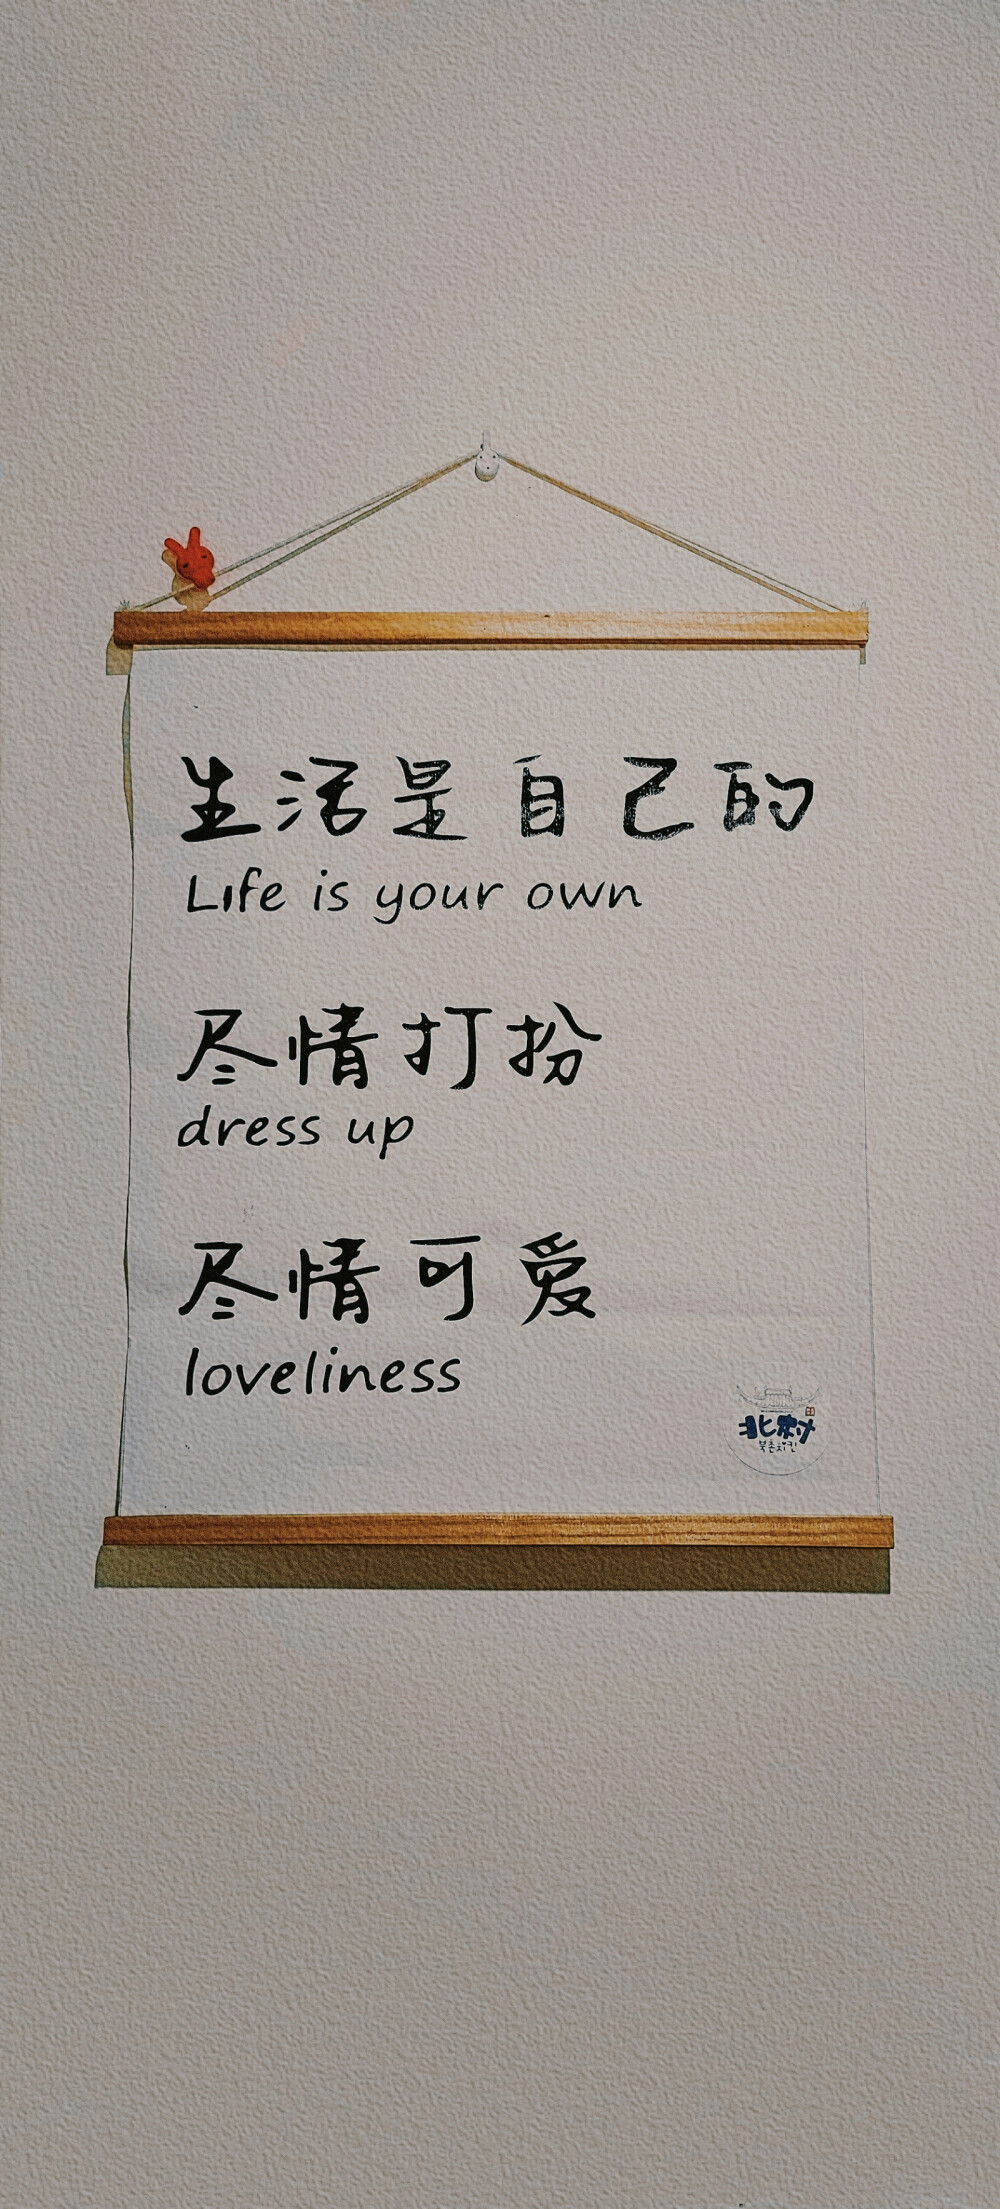 生活是自己的
Life is your own
尽情打扮
dress up
尽情可爱
loveliness
北村
북촌치킨